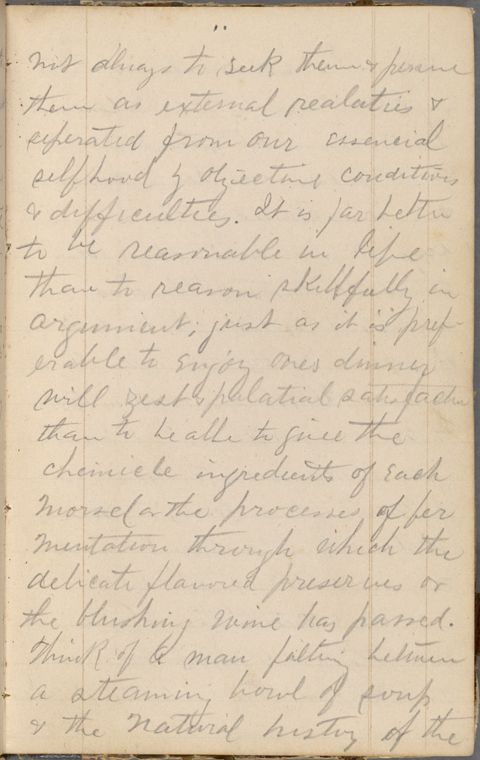 not always to seek them & pursue
them as external realities &
seperated from our essencial
selfhood by objective conditions
& difficulties. It is far better
to be reasonable in life
than to reason skillfully in
argument; just as it is pref-
erable to enjoy ones dinner
will zest & palatial satisfaction
than to be able to give the
chemicle ingredients of each
morsel or the processes of fer
mentation through which the
delicate flavored preserves or
the blushing wine has passed.
Think of a man between
a steaming bowl of soup
& the natural history of the